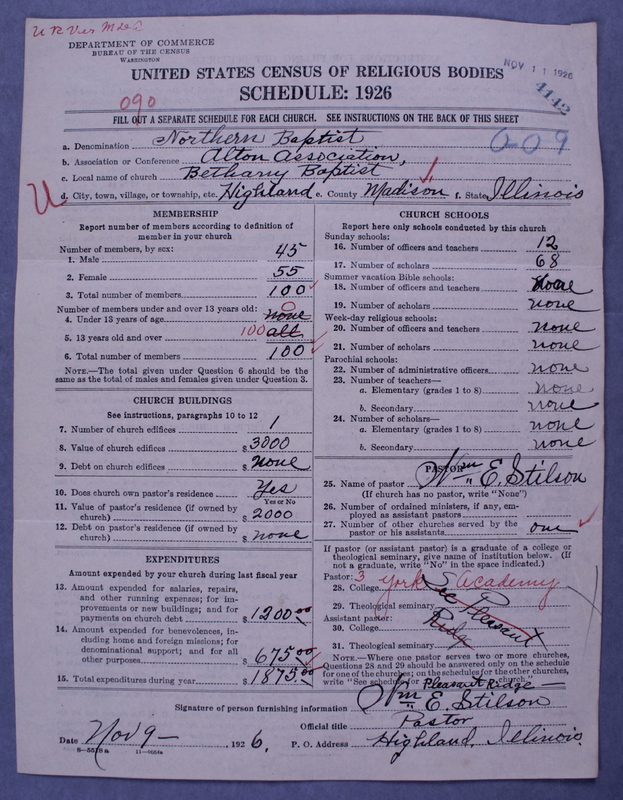 DEPARTMENT OF COMMERCE
BUREAU OF THE CENSUS
WASHINGTON
NOV 11 1926
UNITED STATES CENSUS OF RELIGIOUS BODIES
4142
SCHEDULE: 1926
090
FILL OUT A SEPARATE SCHEDULE FOR EACH CHURCH. SEE INSTRUCTIONS ON THE BACK OF THIS SHEET
0-09
a. Denomination Northern Baptist
b. Association or Conference Alton Association,
c. Local name of church Bethany Baptist
d. City, town, village, or township, etc. Highland e. County Madison f. State Illinois
MEMBERSHIP
Report number of members according to definition of
member in your church
Number of members, by sex:
1. Male 45
2. Female 55
3. Total number of members 100
Number of members under and over 13 years old: 0
4. Under 13 years of age none
5. 13 years old and over 100 all
6. Total number of members 100
NOTE.—The total given under Question 6 should be
the same as the total of males and females given under Question 3.
CHURCH BUILDINGS
See instructions, paragraphs 10 to 12
7. Number of church edifices 1
8. Value of church edifices $ 3000
9. Debt on church edifices $ none
10. Does church own pastor's residence Yes
Yes or No
11. Value of pastor's residence (if owned by
church) $ 2000
12. Debt on pastor's residence (if owned by
church) $ none
EXPENDITURES
Amount expended by your church during last fiscal year
13. Amount expended for salaries, repairs,
and other running expenses; for im-
provements or new buildings; and for
payments on church debt $ 1200.00
14. Amount expended for benevolences, in-
cluding home and foreign missions; for
denominational support; and for all
other purposes $ 675.00
15. Total expenditures during year $ 1875.00
CHURCH SCHOOLS
Report here only schools conducted by this church
Sunday schools:
16. Number of officers and teachers 12
17. Number of scholars 68
Summer vacation Bible schools:
18. Number of officers and teachers none
19. Number of scholars none
Week-day religious schools:
20. Number of officers and teachers none
21. Number of scholars none
Parochial schools:
22. Number of administrative officers none
23. Number of teachers—
a. Elementary (grades 1 to 8) none
b. Secondary none
24. Number of scholars—
a. Elementary (grades 1 to 8) none
b. Secondary none
PASTOR
25. Name of pastor Wm E. Stilson
(If church has no pastor, write "None")
26. Number of ordained ministers, if any, em-
ployed as assistant pastors
27. Number of other churches served by the
pastor or his assistants one
If pastor (or assistant pastor) is a graduate of a college or
theological seminary, give name of institution below. (If
not a graduate, write "No" in the space indicated.)
Pastor: 3 York Academy
28. College See
29. Theological seminary Pleasant
Assistant pastor:
30. College Ridge
31. Theological seminary
NOTE.—Where one pastor serves two or more churches,
Questions 28 and 29 should be answered only on the schedule
for one of the churches; on the schedules for the other churches,
write "See schedule for Pleasant Ridge church."
Signature of person furnishing information Wm E. Stilson
Official title Pastor
Date Nov 9—, 1926. P. O. Address Highland, Illinois.